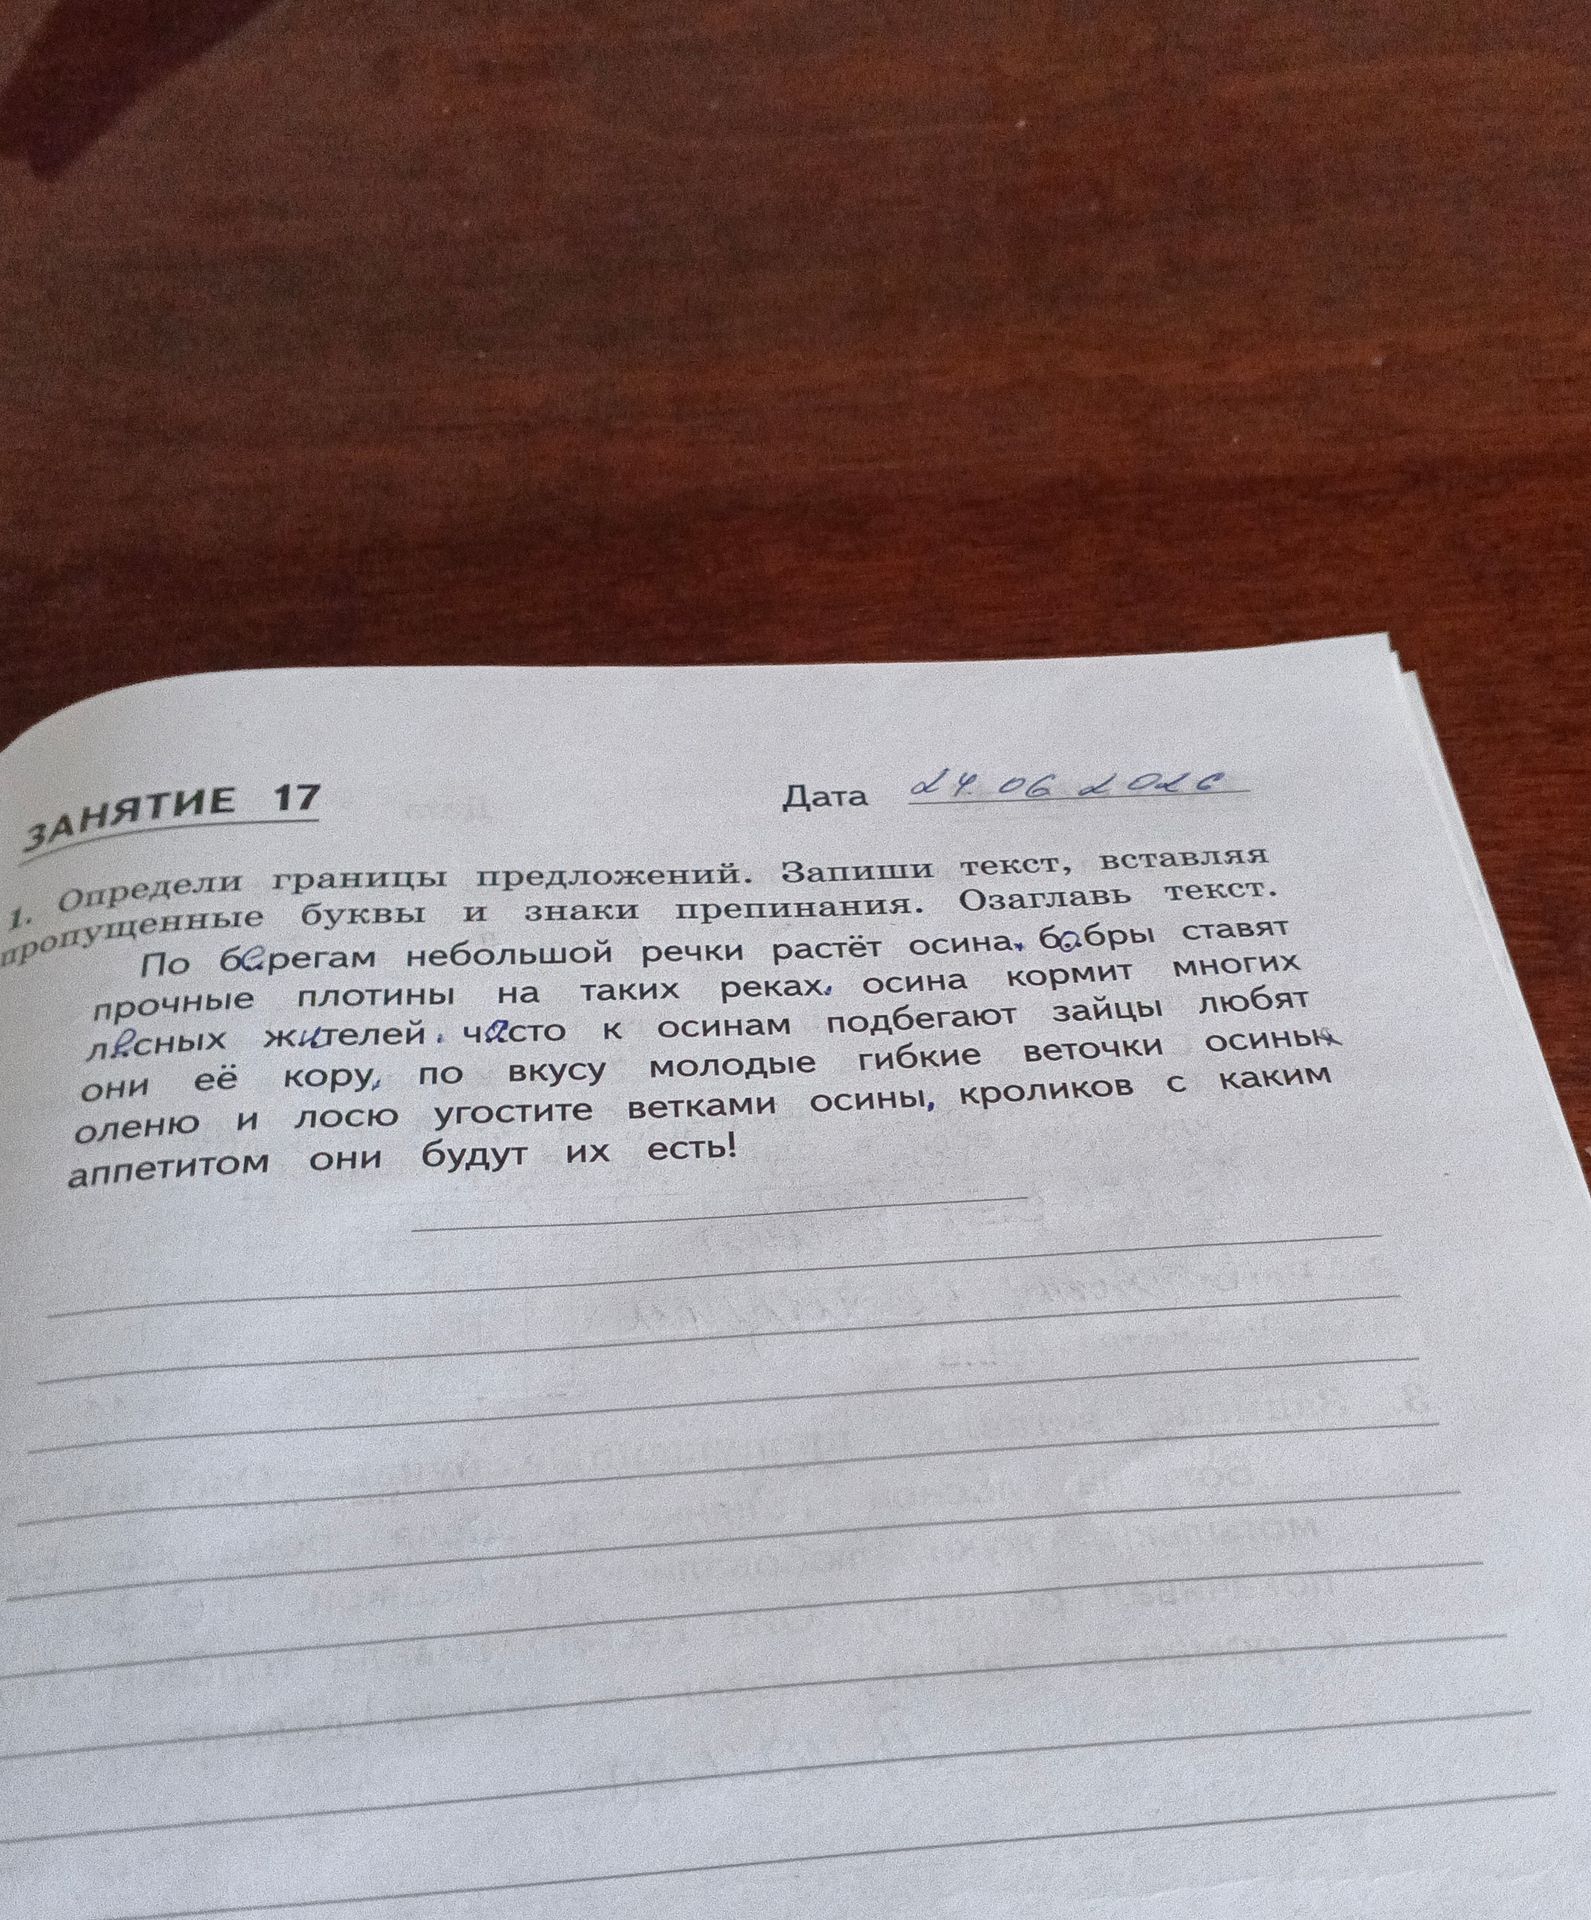 ЗАНЯТИЕ 17 Дата 24 06 2026
1. Определи границы предложений. Запиши текст, вставляя
пропущенные буквы и знаки препинания. Озаглавь текст.
По берегам небольшой речки растёт осина, бобры ставят
прочные плотины на таких реках. осина кормит многих
лесных жителей. часто к осинам подбегают зайцы любят
они её кору, по вкусу молодые гибкие веточки осины
оленю и лосю угостите ветками осины, кроликов с каким
аппетитом они будут их есть!